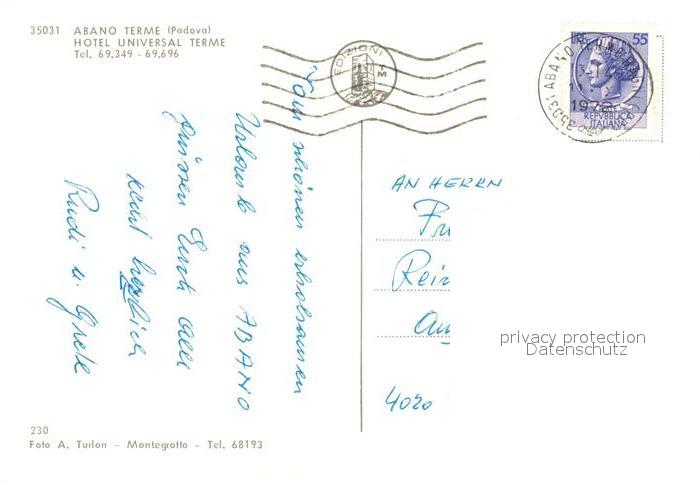 35031 ABANO TERME (Padova)
HOTEL UNIVERSAL TERME
Tel. 69.349 - 69.696
EDIZIONI
TM
LIRE 55
REPVBBLICA
ITALIANA
35031 ABANO TERME
1972
Vom schönen erholsamen
Urlaub aus ABANO
grüssen Euch allen
recht herzlich
Rudi u. Grete
AN HERRN
Fr
Rein
Au
4020
privacy protection
Datenschutz
230
Foto A. Turlon - Montegrotto - Tel. 68193